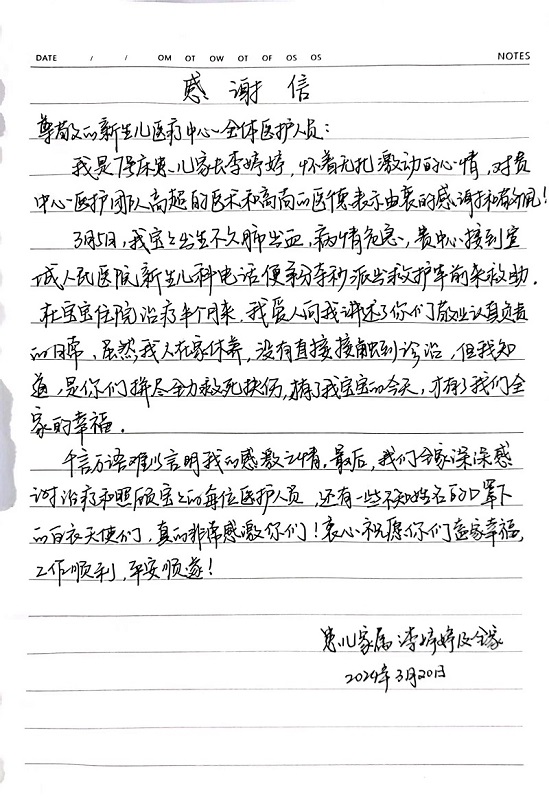 DATE / / OM OT OW OT OF OS OS NOTES
感谢信
尊敬的新生儿医疗中心全体医护人员：
我是 床患儿家长李婷婷，怀着无比激动的心情，对贵
中心医护团队高超的医术和高尚的医德表示由衷的感谢和
3月5日，我宝宝出生不久肺出血，病情危急，贵中心接到宣
城人民医院新生儿科电话便争分夺秒派出救护车前来救助。
在宝宝住院治疗半个月来，我爱人向我讲述了你们敬业认真负责
的日常，虽然我人在家休养，没有直接接触到诊治，但我知
道，是你们拼尽全力救死扶伤，才有了我宝宝的今天，才有了我们全
家的幸福。
千言万语难以言明我的感激之情。最后，我们全家深深感
谢治疗和照顾宝宝的每位医护人员，还有一些不知姓名的口罩下
的白衣天使们，真的非常感激你们！衷心祝愿你们阖家幸福，
工作顺利，平安顺遂！
患儿家属 李婷婷及全家
2024年3月20日